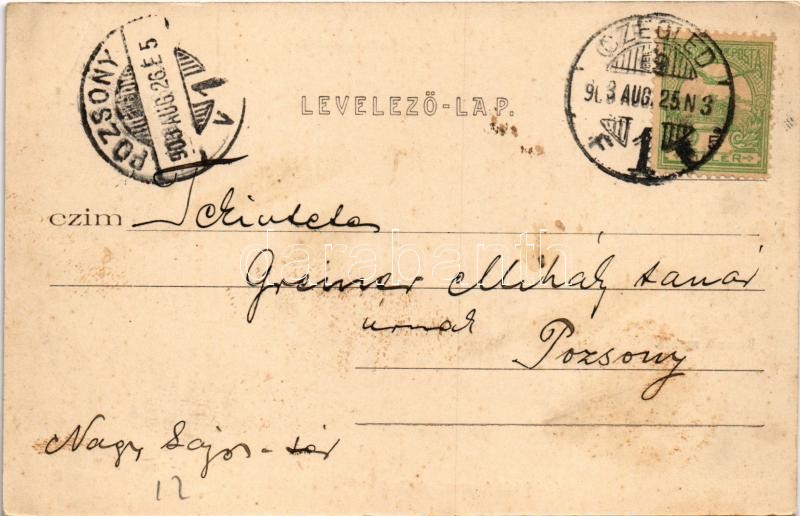 POZSONY
903 AUG. 26. E 5
V
CZEGLÉD
903 AUG. 25. N 3
F 1
POSTA
LEVELEZŐ-LAP.
czim Tekintetes
darabanth
Greiner Mihály tanár
úrnak
Pozsony
Nagy Lajos-tér
12